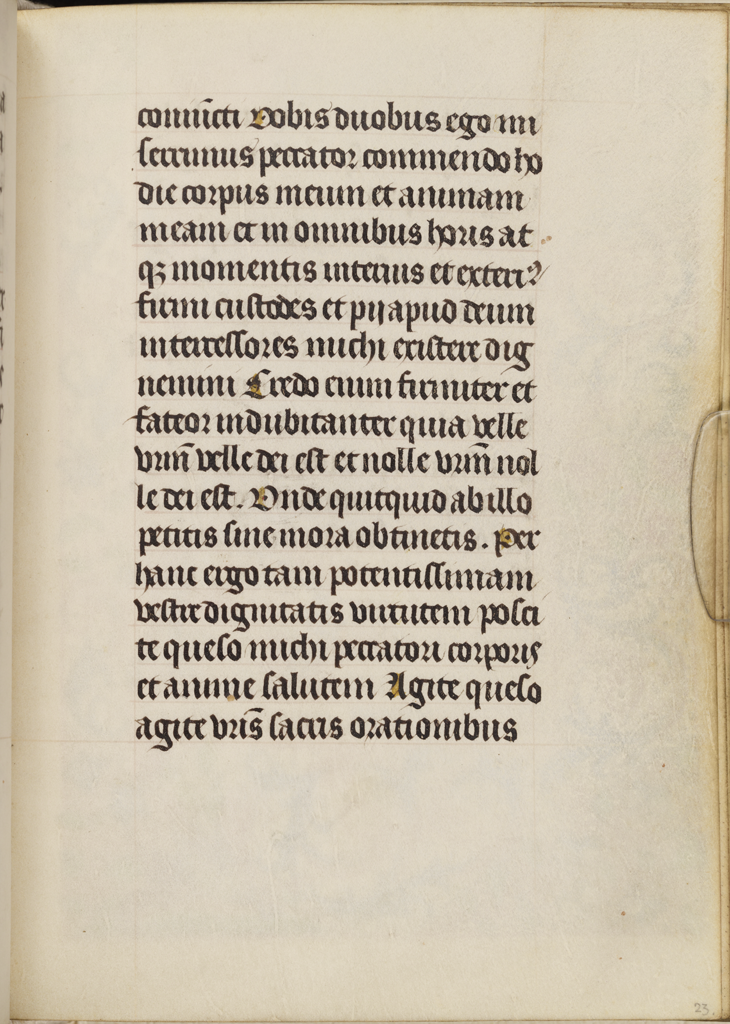 coniūcti Vobis duobus ego mi
serrimus peccator commendo ho
die corpus meum et animam
meam et in omnibus horis at
qꝫ momentis interius et exteriꝰ
firmi custodes et pij apud deum
intercessores michi existere dig
nemini Credo enim firmiter et
fateor indubitanter quia velle
vrm̄ velle dei est et nolle vrm̄ nol
le dei est. Vnde quitquid ab illo
petitis sine mora obtinetis. Per
hanc ergo tam potentissimam
vestre dignitatis virtutem posci
te queso michi peccatori corporis
et anime salutem Agite queso
agite vris̄ sacris orationibus
23